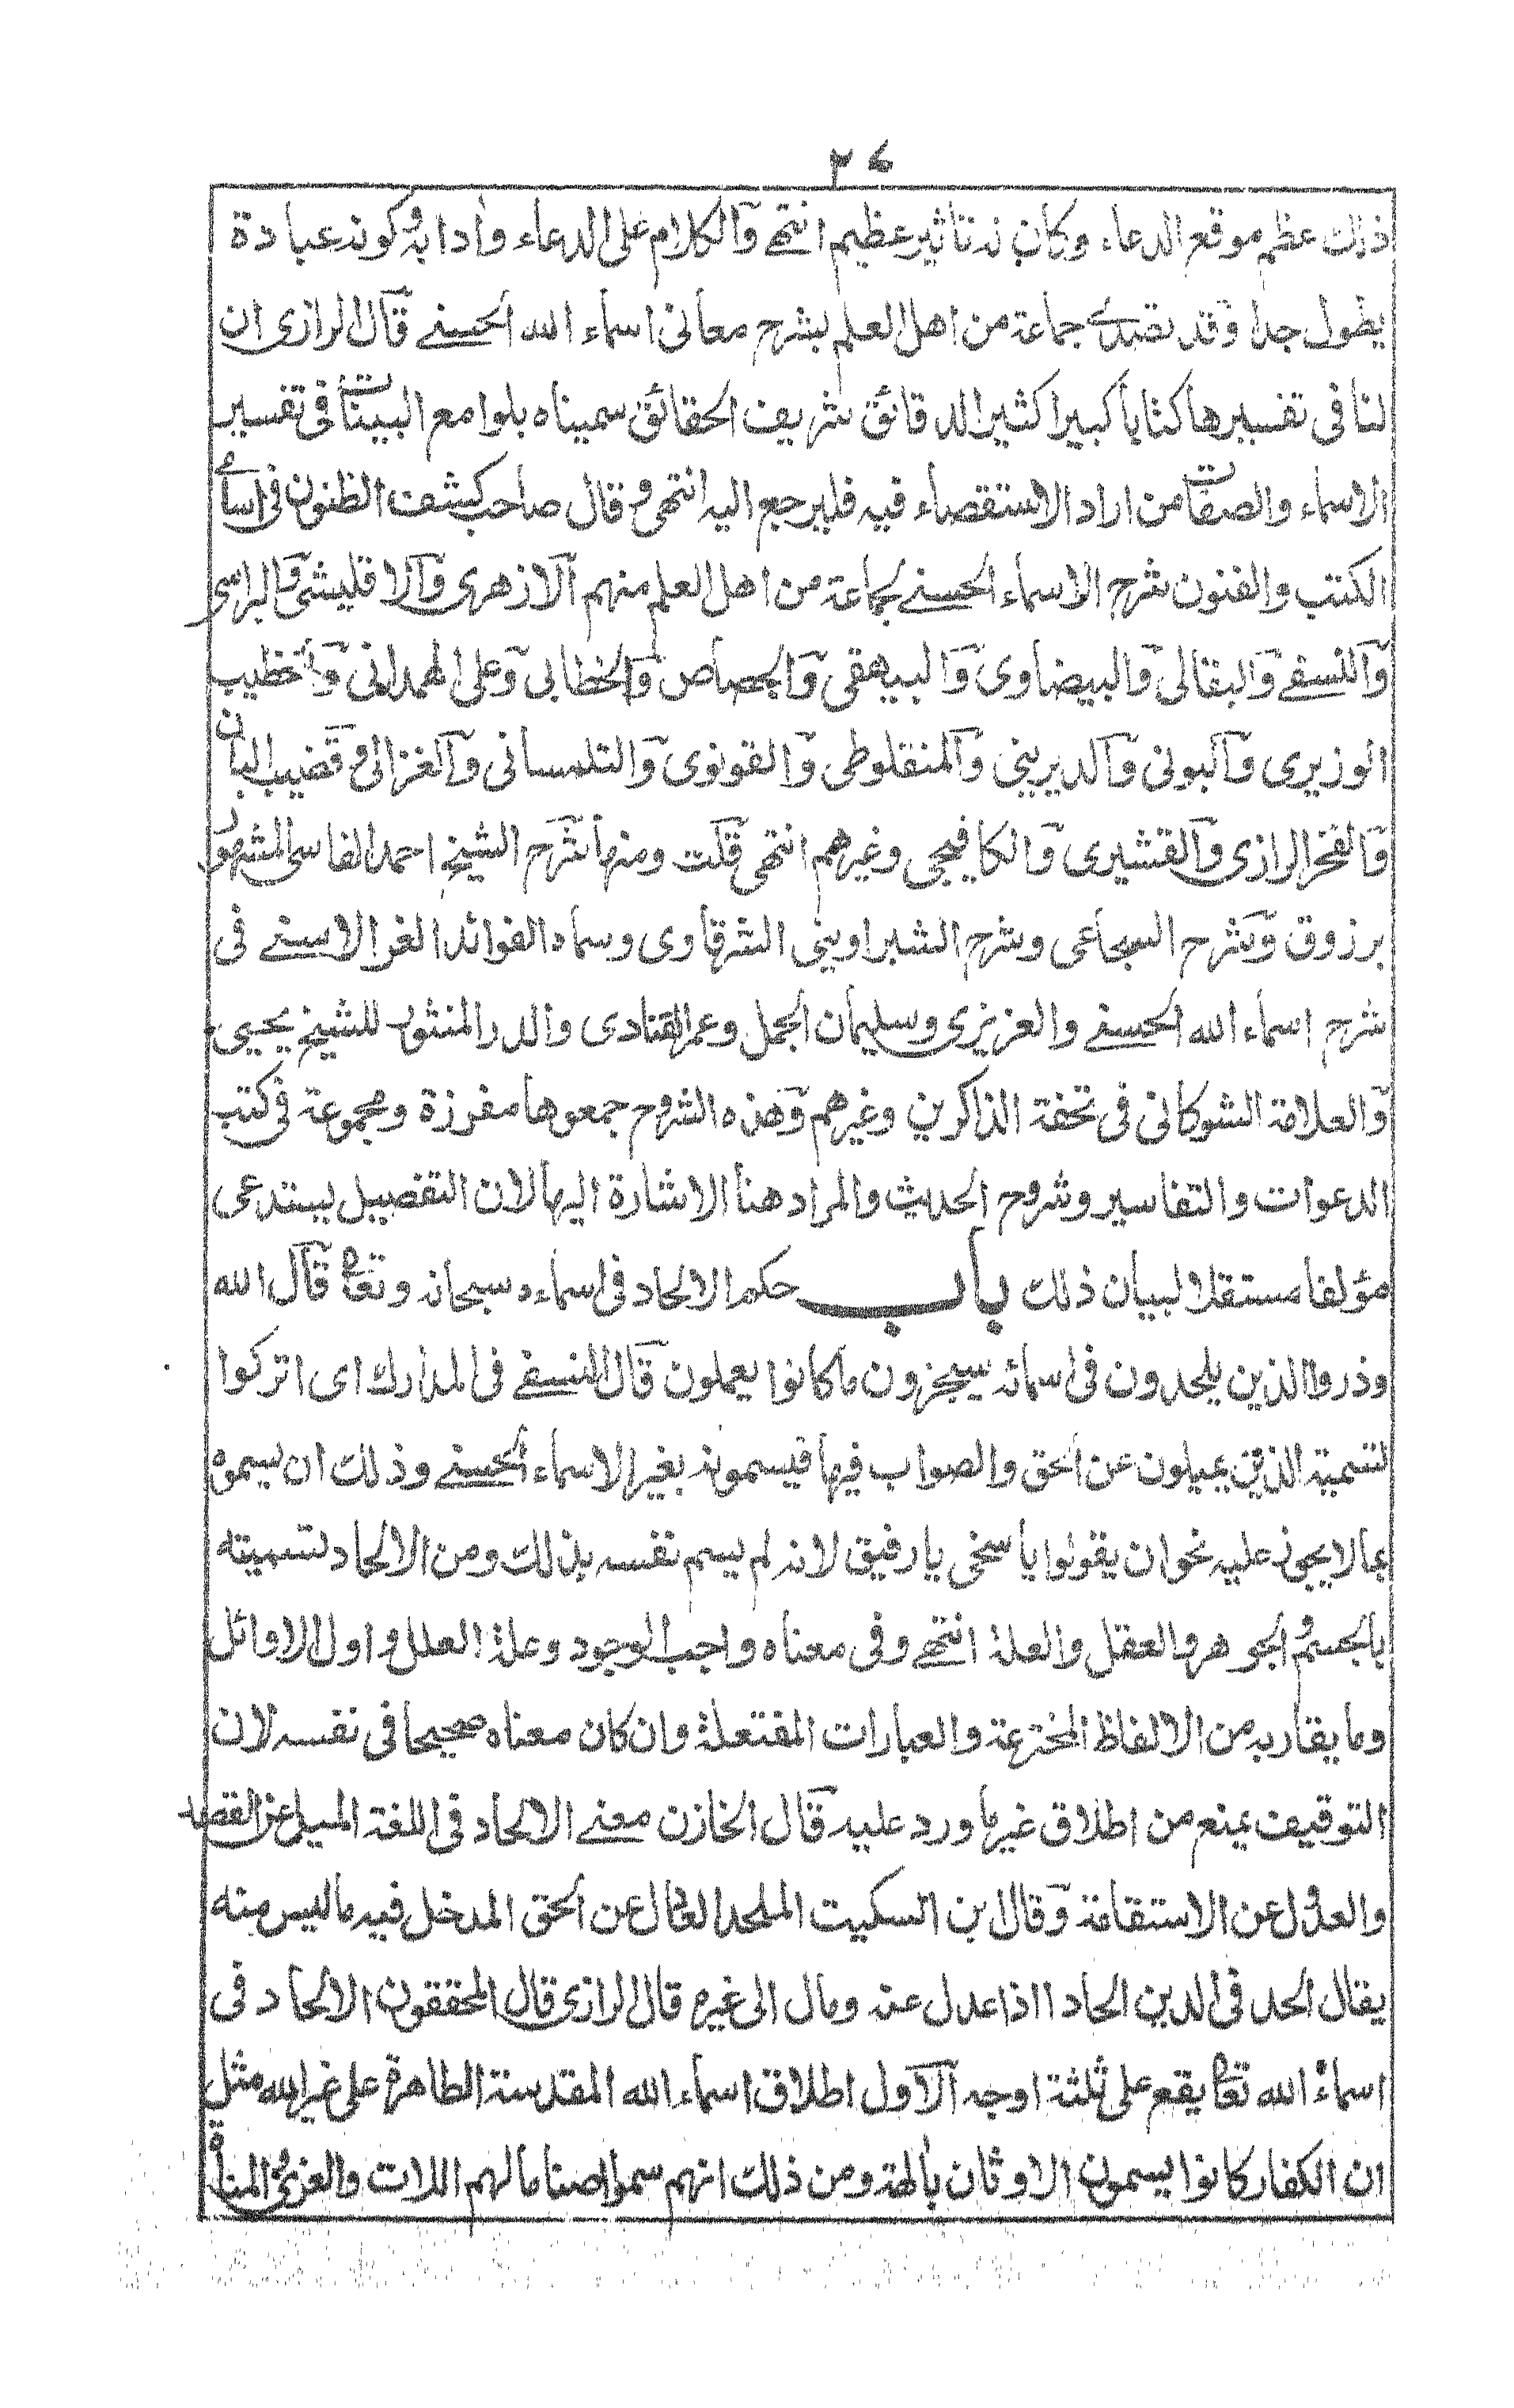 ٢٤
ذلك عظم موقع الدعاء وكان له تاثير عظيم انتهى والكلام على الدعاء وادابه وكونه عبادة
يطول جدا وقد تصدى جماعة من اهل العلم بشرح معانى اسماء الله الحسنى قال الرازى ان
لنا فى تفسيرها كتابا كبيرا كثير الدقائق شريف الحقائق سميناه بلوامع البينات فى تفسير
الاسماء والصفات من اراد الاستقصاء فيه فليرجع اليه انتهى وقال صاحب كشف الظنون فى اسامى
الكتب والفنون شرح الاسماء الحسنى لجماعة من اهل العلم منهم الازهرى والاقليشى و
والنسفى والبقالى والبيضاوى والبيهقى والجصاص والخطابى وعلى الهمدانى والخطيب
الوزيرى والبونى والديرينى والمنفلوطى والقونوى والتلمسانى والغزالى وقضيب البان
والفخر الرازى والقشيرى والكافيجى وغيرهم انتهى قلت ومنها شرح الشيخ احمد الفاسى المشهور
بزروق وشرح السجاعى وشرح الشبراوينى الشرقاوى وسماه الفوائد الغر الاسنى فى
شرح اسماء الله الحسنى والعزيزى وسليمان الجمل وعمر القنادى والدر المنثور للشيخ يحيى
والعلامة الشوكانى فى تحفة الذاكرين وغيرهم وهذه الشروح جمعوها مفرزة ومجموعة فى كتب
الدعوات والتفاسير وشروح الحديث والمراد هنا الاشارة اليها لان التفصيل يستدعى
مؤلفا مستقلا لبيان ذلك باب حكم الالحاد فى اسماءه سبحانه وتعا قال الله
وذروا الذين يلحدون فى اسمائه سيجزون ما كانوا يعملون قال النسفى فى المدارك اى اتركوا
تسمية الذين يميلون عن الحق والصواب فيها فيسمونه بغير الاسماء الحسنى وذلك ان يسموه
بما لا يجوز عليه نحو ان يقولوا يا سخى يا رفيق لانه لم يسم نفسه بذلك ومن الالحاد تسميته
بالجسم والجوهر والعقل والعلة انتهى وفى معناه واجب الوجود وعلة العلل واول الاوائل
وما يقاربه من الالفاظ المخترعة والعبارات المفتعلة وان كان معناه صحيحا فى نفسه لان
التوقيف يمنع من اطلاق غير ما ورد عليه قال الخازن معنى الالحاد فى اللغة الميل عن القصد
والعدول عن الاستقامة وقال ابن السكيت الملحد العادل عن الحق المدخل فيه ما ليس منه
يقال الحد فى الدين الحادا اذا عدل عنه ومال الى غيره قال الرازى قال المحققون الالحاد فى
اسماء الله تعا يقع على ثلثة اوجه الاول اطلاق اسماء الله المقدسة الطاهرة على غير الله مثل
ان الكفار كانوا يسمون الاوثان بالهة ومن ذلك انهم سموا اصناما لهم اللات والعزى والمناة